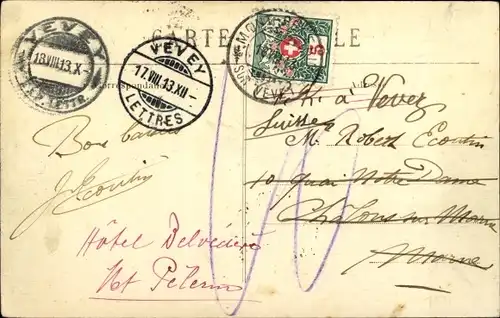 CARTE POSTALE
VEVEY
18.VIII.13.X-
LETTR.
VEVEY
17.VIII.13.XII-
LETTRES
VEVEY
5
Correspondance
à Vevey
Suisse
Mr Robert Ecoutin
10 quai Notre Dame
Châlons sur Marne
Marne
Bons baisers
J Ecoutin
Hôtel Belvédère
Mt Pélerin